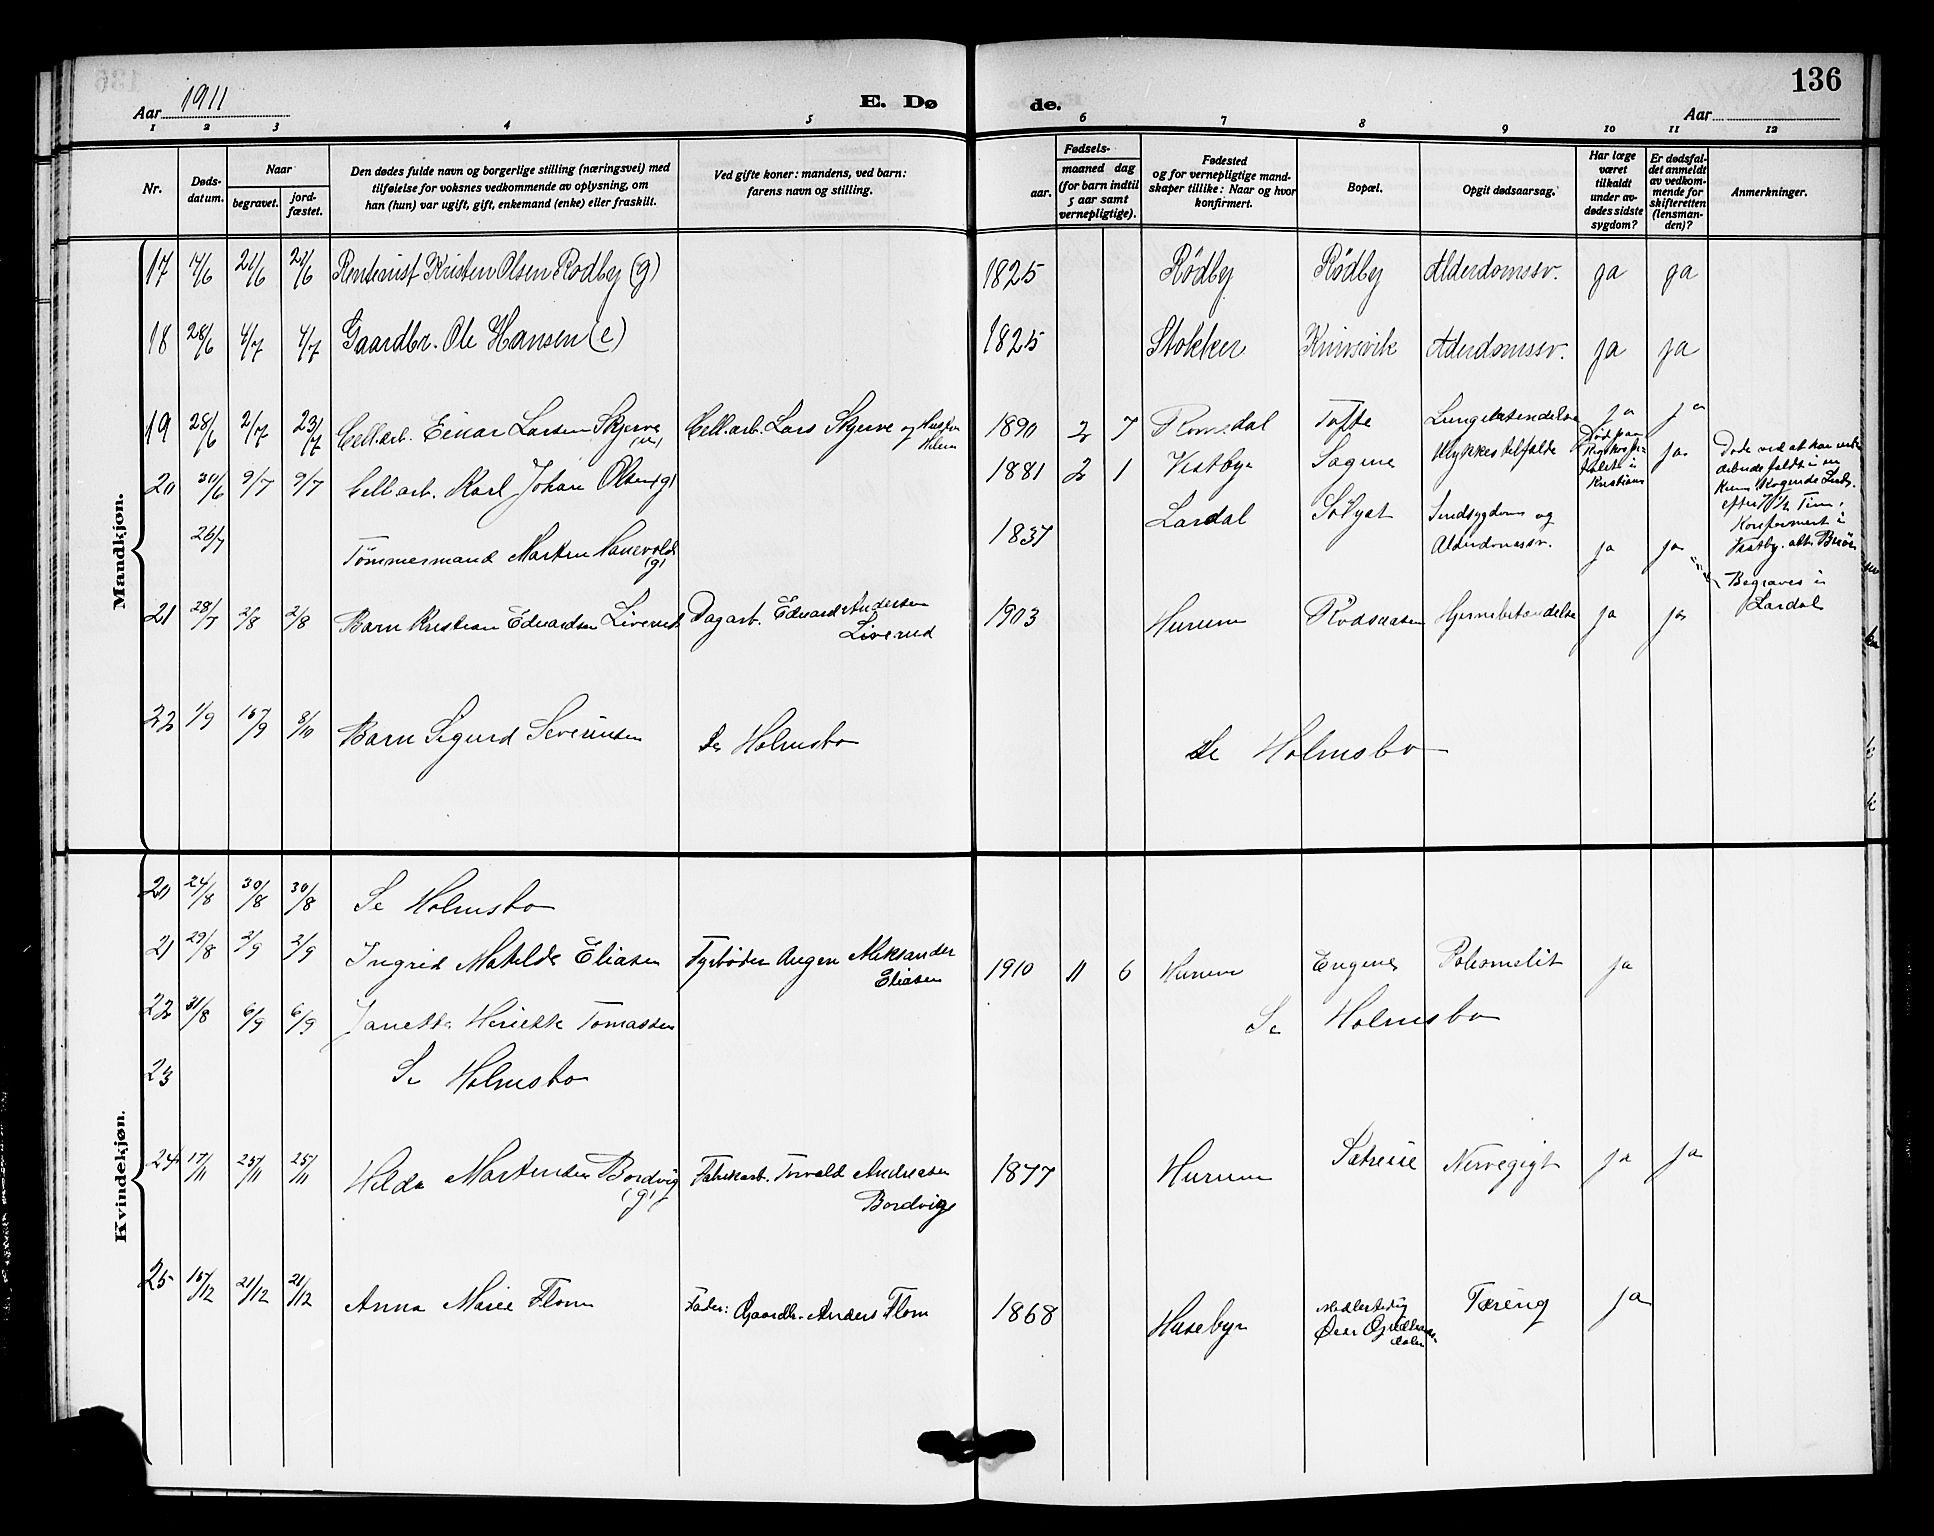 136
Aar 1911
E. Dø
de.
Aar
1 2 3 4 5 6 7 8 9 10 11 12
Nr.
Døds-
datum.
Naar
begravet.
jord-
fæstet.
Den dødes fulde navn og borgerlige stilling (næringsvei) med
tilføielse for voksnes vedkommende av oplysning, om
han (hun) var ugift, gift, enkemand (enke) eller fraskilt.
Ved gifte koner: mandens, ved barn:
farens navn og stilling.
Fødsels-
aar.
maaned dag
(for barn indtil
5 aar samt
vernepligtige).
Fødested
og for vernepligtige mand-
skaper tillike: Naar og hvor
konfirmert.
Bopæl.
Opgit dødsaarsag.
Har læge
været
tilkaldt
under av-
dødes sidste
sygdom?
Er dødsfal-
det anmeldt
av vedkom-
mende for
skifteretten
(lensman-
den)?
Anmerkninger.
Mandkjøn.
17 17/6 21/6 21/6 Rentenist Kristen Olsen Rødby (g) 1825 Rødby Rødby Alderdomssv. ja ja
18 28/6 4/7 4/7 Gaardbr. Ole Hansen (e) 1825 Stokker Knivsvik Alderdomssv. ja ja
19 28/6 2/7 23/7 Cell.arb. Einar Larsen Skjerve Cell.arb. Lars Skjerve og 1890 2 7 Romsdal Tofte Lungebetendelse ja ja
20 30/6 9/7 9/7 Cell.arb. Karl Johan Olsen (g) 1881 2 1 Vestby Sagene Ulykkestilfælde
Død paa
Kristiania
ja
26/7 Tømmermand Morten Hanevold (g) 1837 Lardal Sindsygdom og
Alderdomssv. ja ja
Døde ved at han under
arbeide faldt i en
Kum Kogende Lud,
efter 7 1/2 Time.
Konfirmert i
Vestby.
Begraves i
Lardal
21 28/7 2/8 2/8 Barn Kristian Edvardsen Liverud Dagarb. Edvard Andersen
Liverud 1903 Hurum Rødsaasen Hjernebetendelse ja ja
22 1/9 15/9 8/10 Barn Sigurd Severinsen Se Holmsbo Se Holmsbo
Kvindekjøn.
20 24/8 30/8 30/8 Se Holmsbo
21 29/8 2/9 2/9 Ingrid Matilde Eliasen Fyrbøder Augen Aleksander
Eliasen 1910 11 6 Hurum Engene Poliomelit ja
22 31/8 6/9 6/9 Janette Heriette Tomassen Se Holmsbo
23 Se Holmsbo
24 17/11 25/11 25/11 Hilda Martinsen Bordvig
(g) Fabrikarb. Torvald Andreasen
Bordvig 1877 Hurum Sætreie Nervegigt ja ja
25 15/12 21/12 21/12 Anna Marie Flom Fader: Gaardbr. Anders Flom 1868 Husebye Midlertidig
Øvre Tæring ja